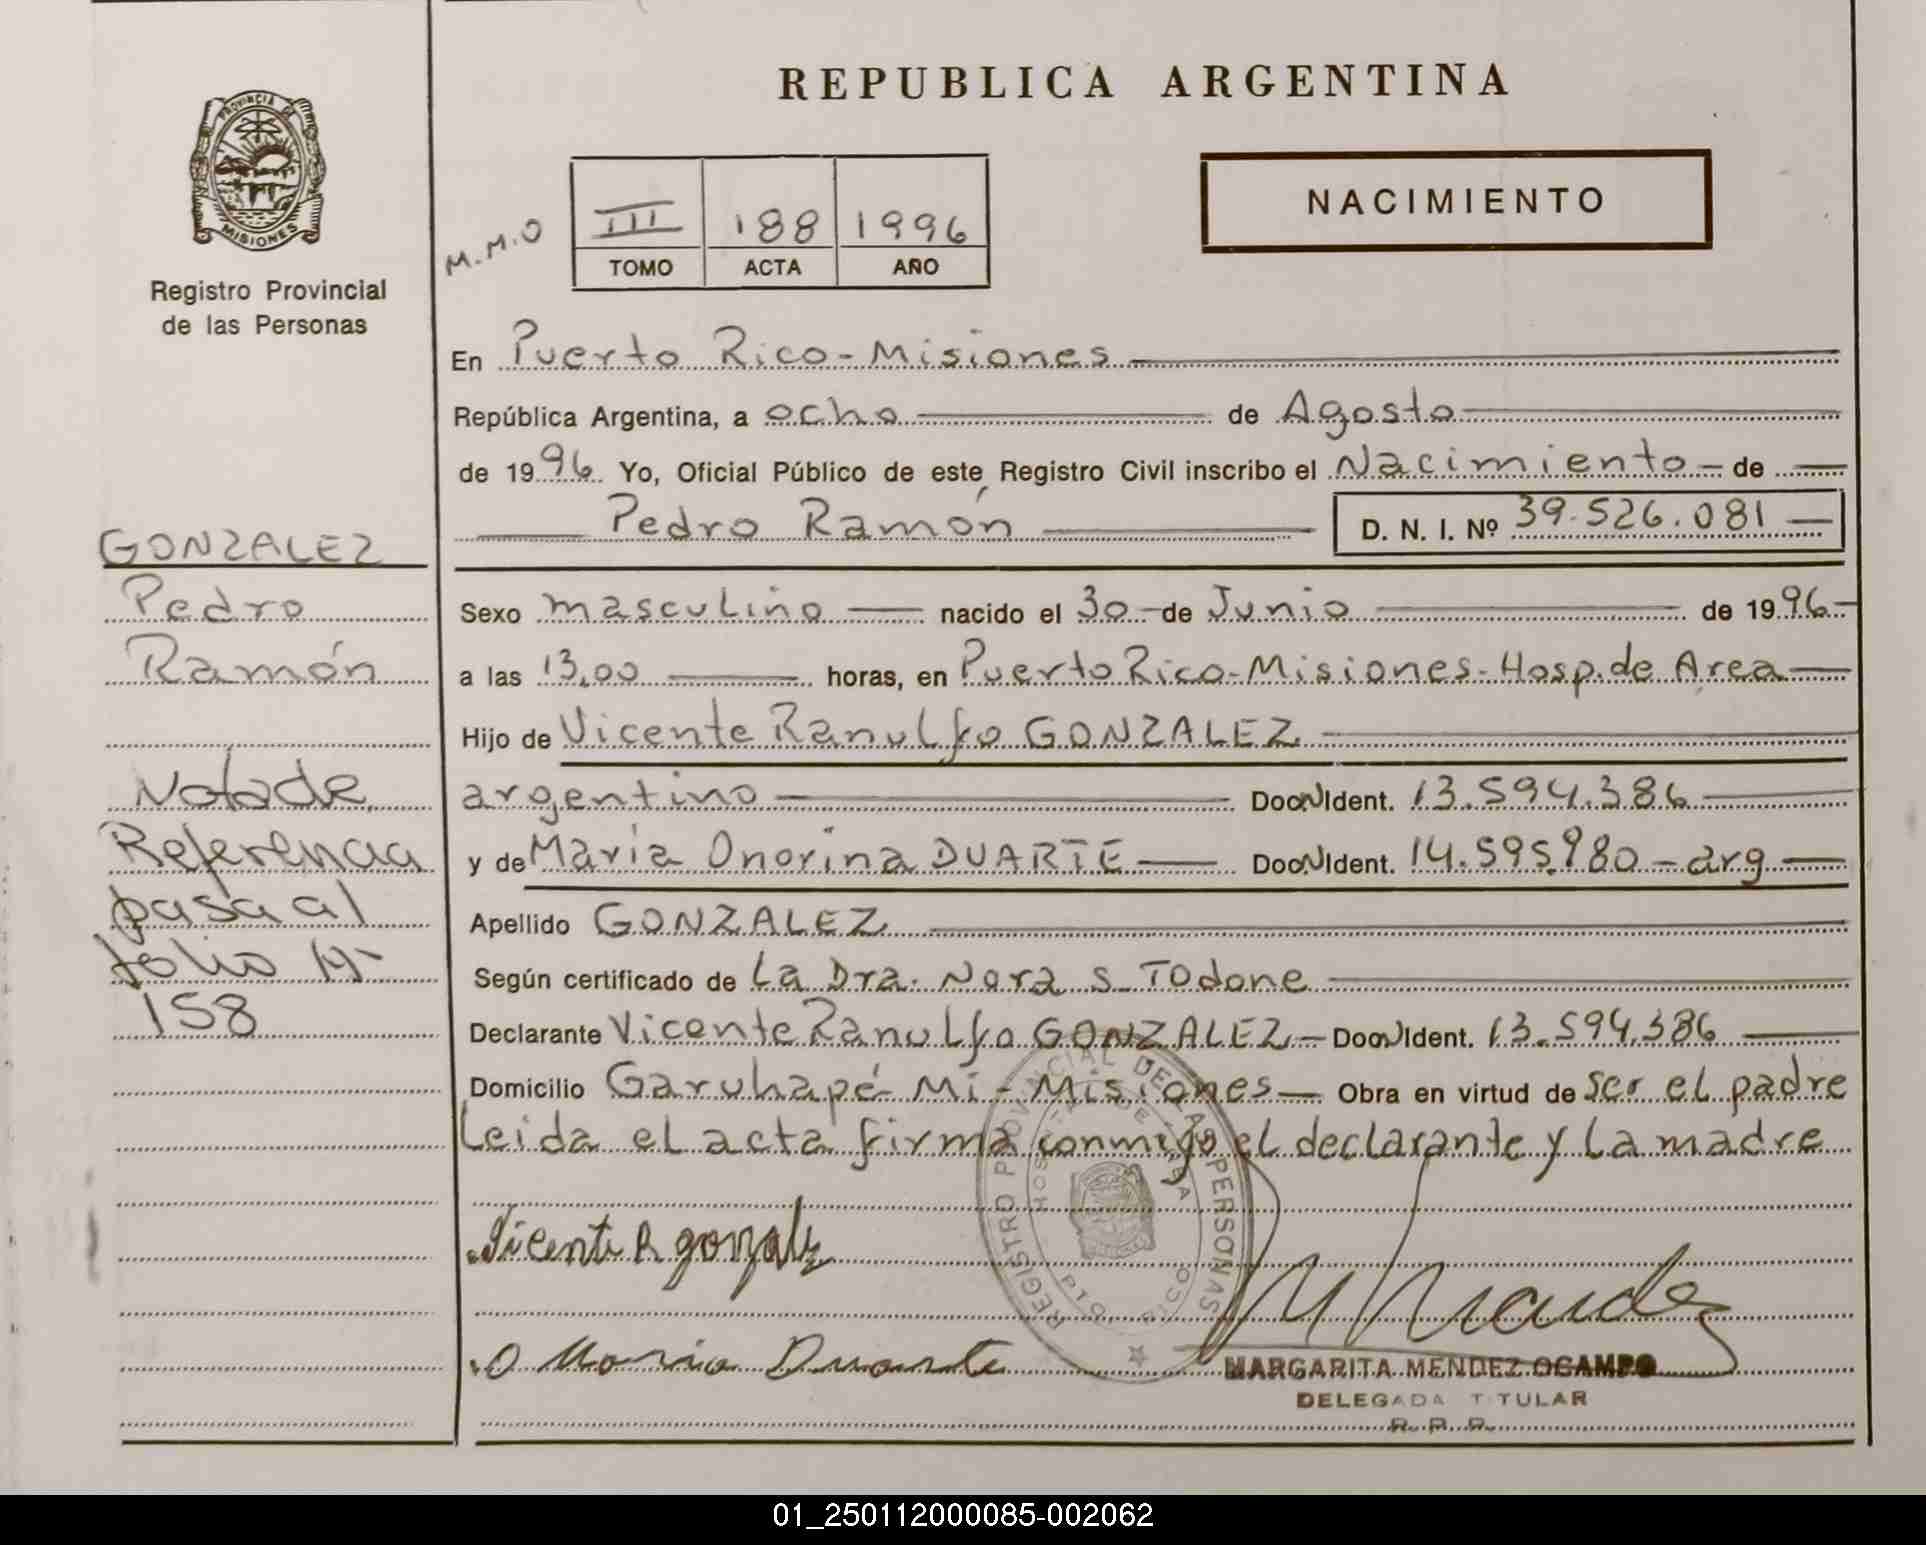 REPUBLICA ARGENTINA
PROVINCIA DE
MISIONES
Registro Provincial
de las Personas
M.M.O
III 188 1996
TOMO ACTA AÑO
NACIMIENTO
En Puerto Rico - Misiones
República Argentina, a ocho de Agosto
de 1996 Yo, Oficial Público de este Registro Civil inscribo el Nacimiento de
Pedro Ramón D. N. I. Nº 39.526.081
GONZALEZ
Pedro
Ramón
Nota de
Referencia
pasa al
folio Nº
158
Sexo masculino nacido el 30 de Junio de 1996
a las 13,00 horas, en Puerto Rico - Misiones - Hosp. de Area
Hijo de Vicente Ranulfo GONZALEZ
argentino Doc. N Ident. 13.594.386
y de Maria Onorina DUARTE Doc. N Ident. 14.595.980 - arg
Apellido GONZALEZ
Según certificado de La Dra. Nora S. Todone
Declarante Vicente Ranulfo GONZALEZ - Doc. N Ident. 13.594.386
Domicilio Garuhapé - Mi - Misiones - Obra en virtud de ser el padre
Leida el acta firma conmigo el declarante y la madre
Vicente R gonzalez
O Maria Duarte
REGISTRO PROVINCIAL DE LAS PERSONAS
PTO. RICO
M Mendez
MARGARITA MENDEZ OCAMPO
DELEGADA TITULAR
R. P. P.
01_250112000085-002062